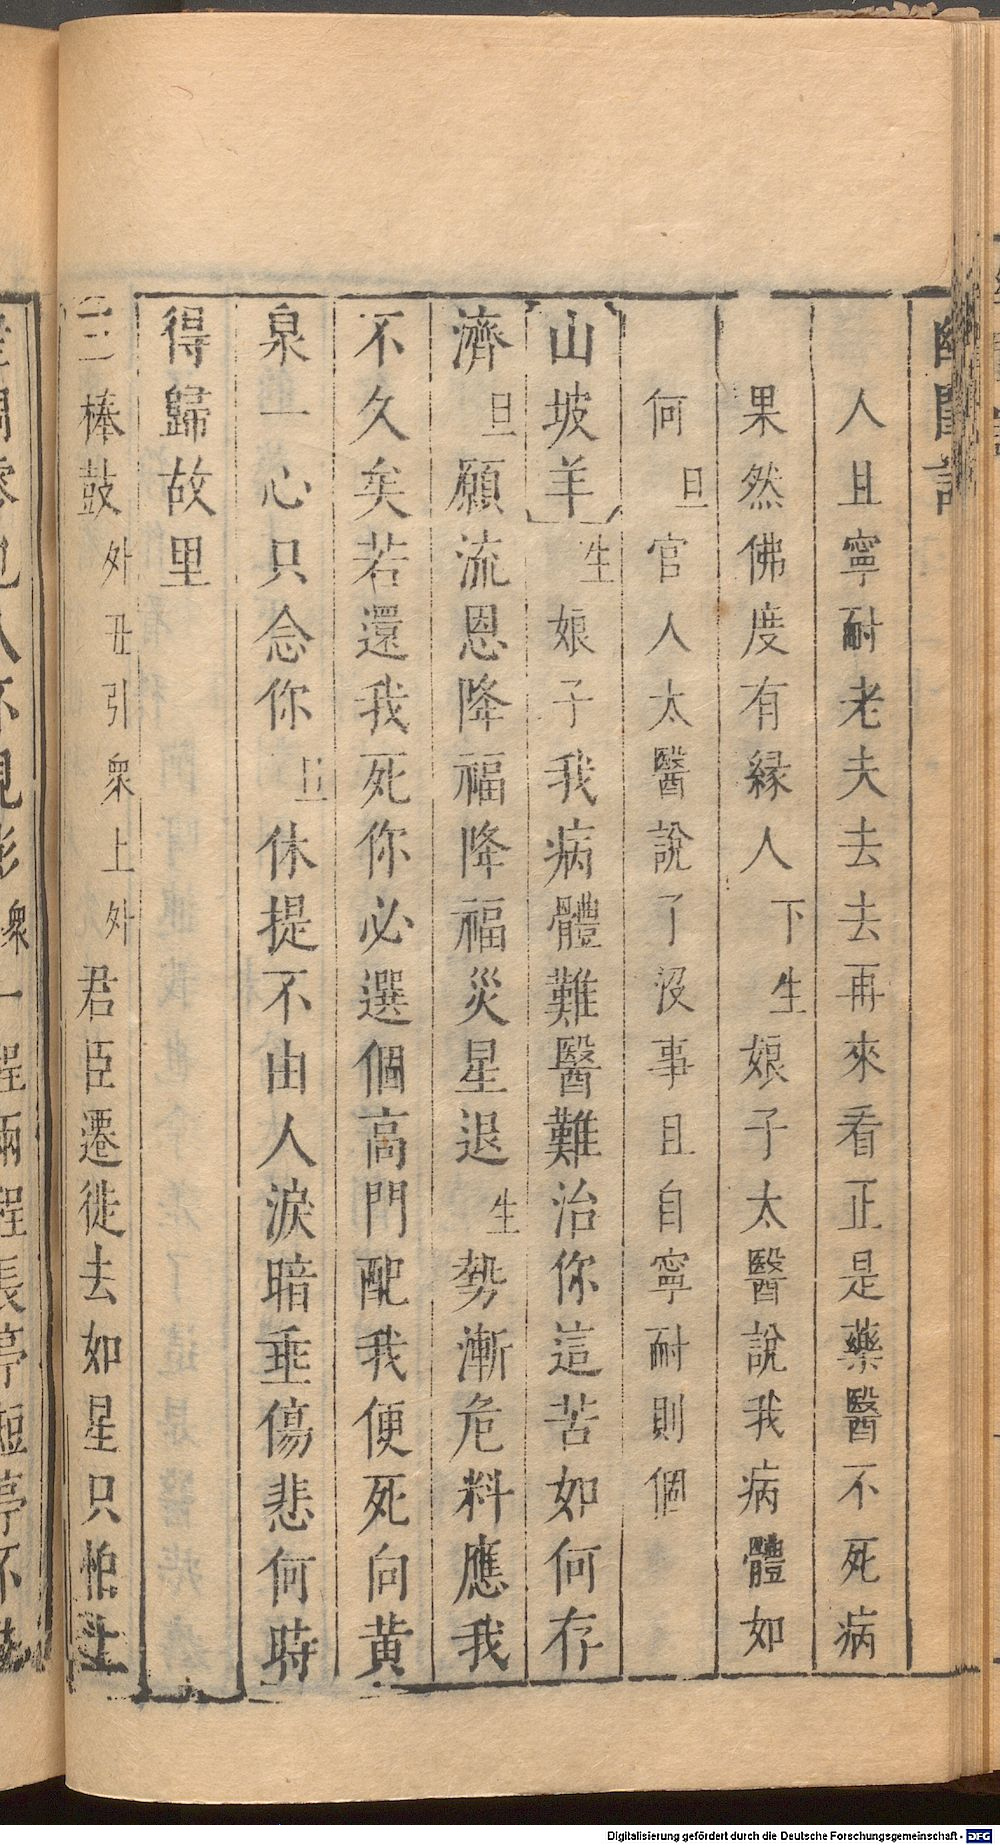 幽閨記
人且寧耐老夫去去再來看正是藥醫不死病
果然佛度有緣人下生娘子太醫說我病體如
何旦官人太醫說了沒事且自寧耐則個
山坡羊生娘子我病體難醫難治你這苦如何存
濟旦願流恩降福降福災星退生勢漸危料應我
不久矣若還我死你必選個高門配我便死向黃
泉一心只念你旦休提不由人淚暗垂傷悲何時
得歸故里
三棒鼓外丑引衆上外君臣遷徙去如星只怕土
衆一程兩程長亭短亭不
Digitalisierung gefördert durch die Deutsche Forschungsgemeinschaft - DFG